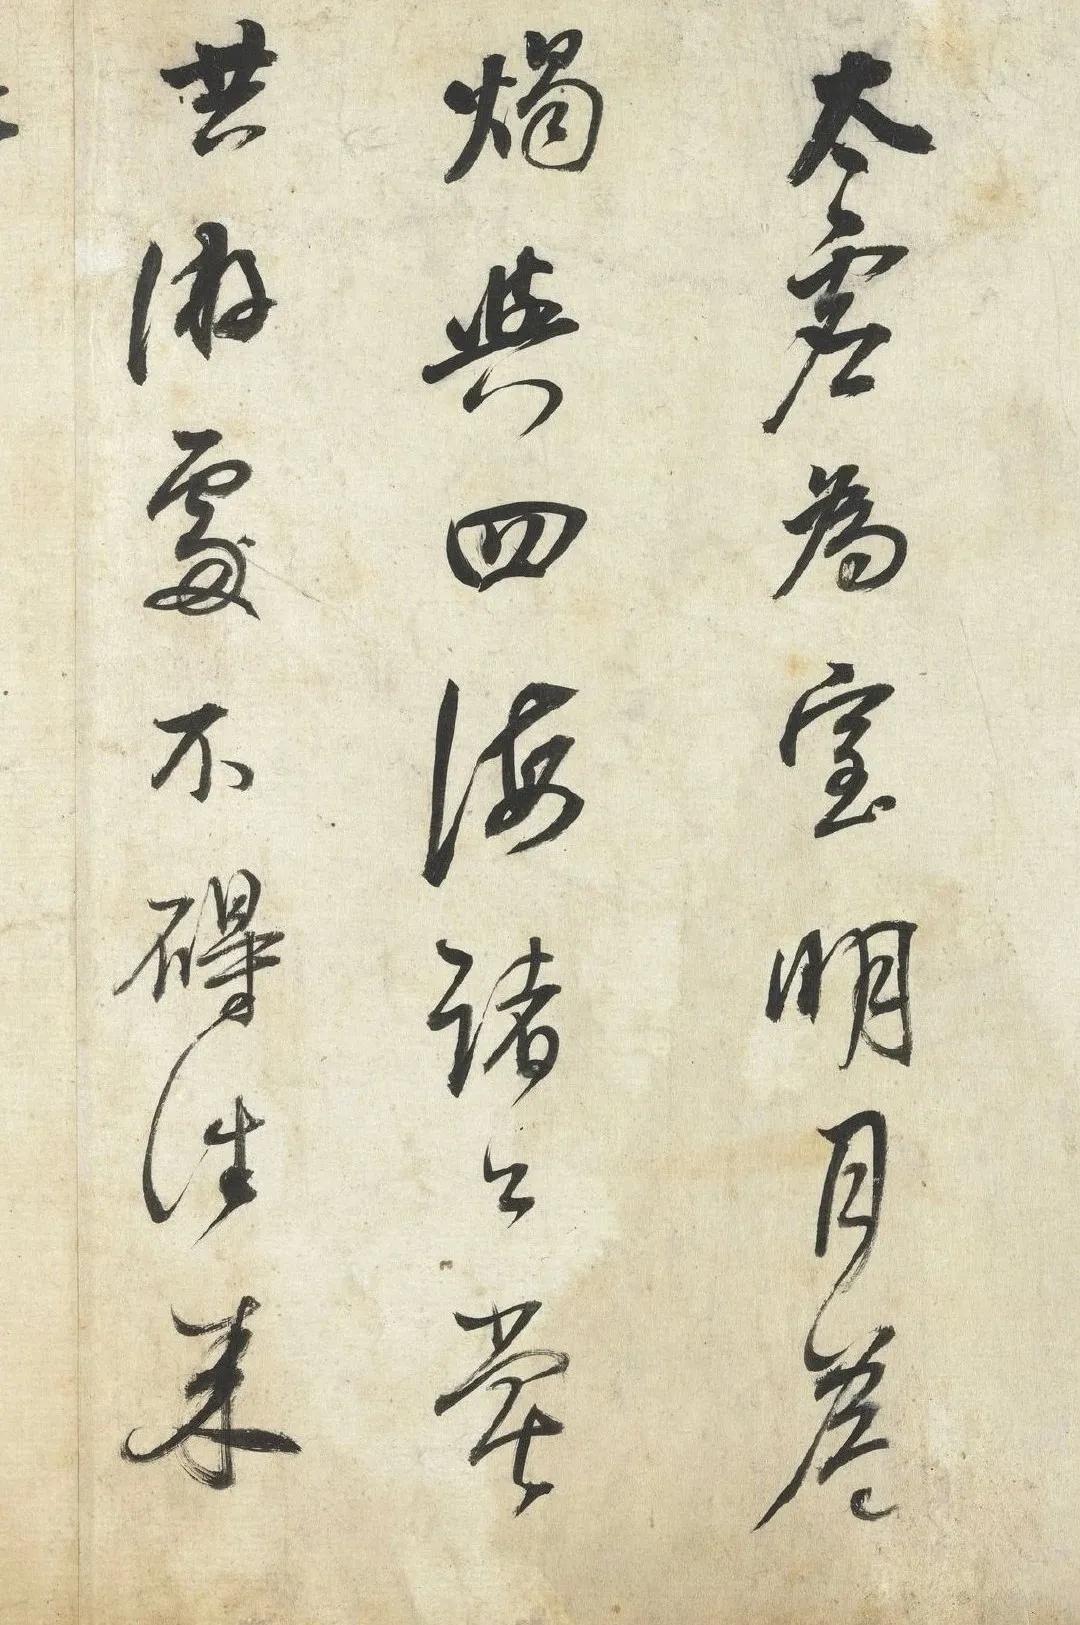 太虛為室明月為
燭與四海諸公
共游處不碍往來